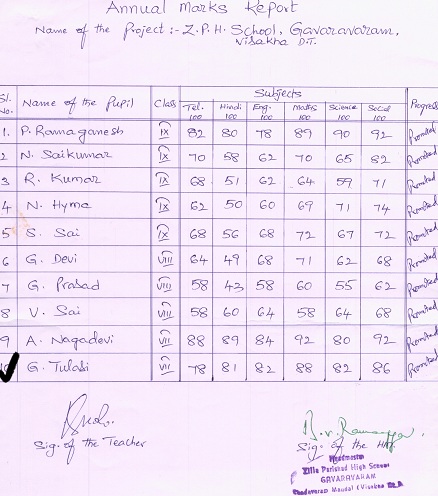 Annual Marks Report
Name of the Project :- Z.P.H. School, Gavaravaram,
Visakha D.T.
Subjects
Sl. No. Name of the Pupil Class Tel. 100 Hindi 100 Eng. 100 Maths 100 Science 100 Social 100 Progress
1. P. Ramaganesh IX 82 80 78 89 90 92 Promoted
2 N. Saikumar IX 70 58 62 70 65 82 Promoted
3 R. Kumar IX 68 51 62 64 59 71 Promoted
4 N. Hyma IX 62 50 60 69 71 74 Promoted
5 S. Sai IX 68 56 68 72 67 72 Promoted
6 G. Devi VIII 64 49 68 71 62 68 Promoted
7 G. Prasad VIII 58 43 58 60 55 62 Promoted
8 V. Sai VIII 58 60 64 58 64 68 Promoted
9 A. Nagadevi VII 88 89 84 92 80 92 Promoted
G. Tulasi VII 78 81 82 88 82 86 Promoted
Sig. of the Teacher
Sig. of the HM
Headmaster
Zilla Parishad High School
GAVARAVARAM
Mandal (Visakha Dt.)